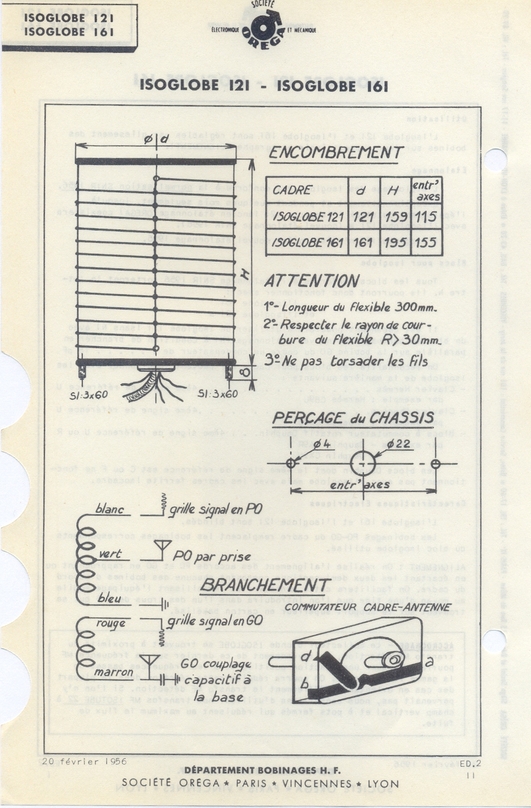 ISOGLOBE 121
ISOGLOBE 161
SOCIÉTÉ
ÉLECTRONIQUE ET MÉCANIQUE
OREGA
ISOGLOBE 121 - ISOGLOBE 161
ϕ d
H
8
SI:3x60
SI:3x60
ENCOMBREMENT
CADRE d H entr' axes
ISOGLOBE 121 121 159 115
ISOGLOBE 161 161 195 155
ATTENTION
1°- Longueur du flexible 300mm.
2°- Respecter le rayon de cour-
bure du flexible R>30mm.
3°- Ne pas torsader les fils
PERÇAGE du CHASSIS
ϕ4
ϕ22
entr' axes
blanc
grille signal en PO
vert
PO par prise
bleu
rouge
grille signal en GO
marron
GO couplage
capacitif à
la base
BRANCHEMENT
COMMUTATEUR CADRE-ANTENNE
d
a
b
20 février 1956
ED.2
11
DÉPARTEMENT BOBINAGES H. F.
SOCIÉTÉ ORÉGA ★ PARIS ★ VINCENNES ★ LYON